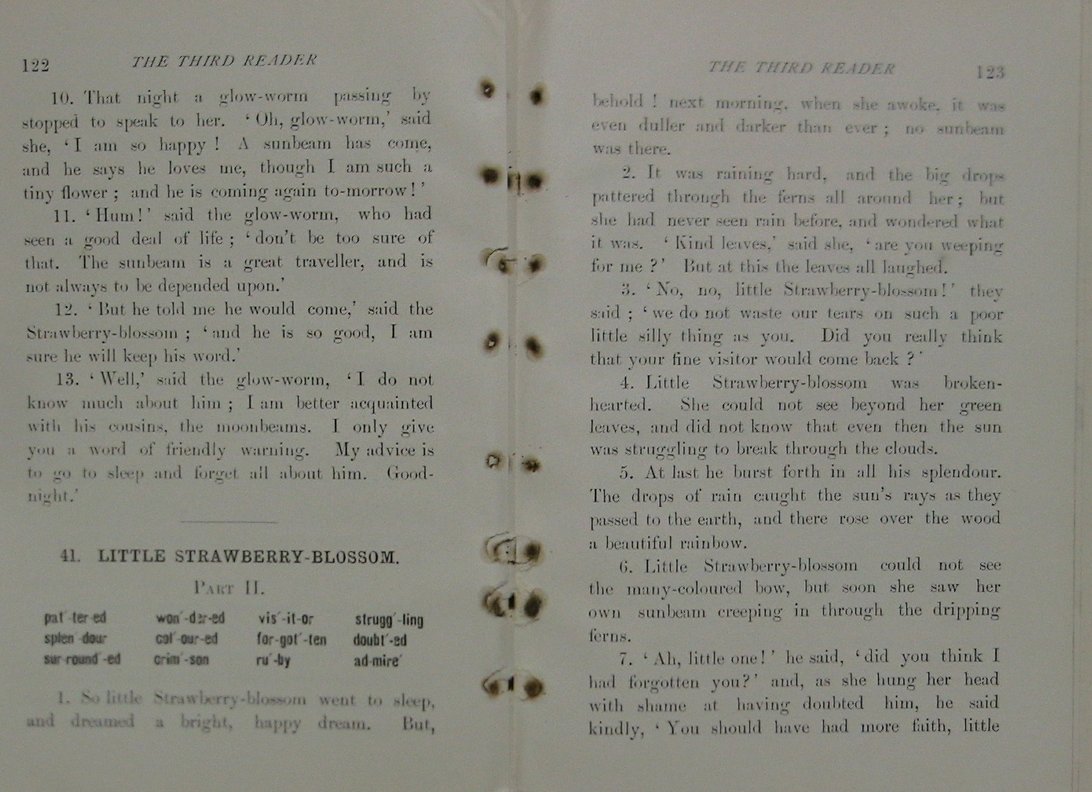 122
THE THIRD READER
10. That night a glow-worm passing by
stopped to speak to her. ‘Oh, glow-worm,’ said
she, ‘I am so happy! A sunbeam has come,
and he says he loves me, though I am such a
tiny flower; and he is coming again to-morrow!’
11. ‘Hum!’ said the glow-worm, who had
seen a good deal of life; ‘don’t be too sure of
that. The sunbeam is a great traveller, and is
not always to be depended upon.’
12. ‘But he told me he would come,’ said the
Strawberry-blossom; ‘and he is so good, I am
sure he will keep his word.’
13. ‘Well,’ said the glow-worm, ‘I do not
know much about him; I am better acquainted
with his cousins, the moonbeams. I only give
you a word of friendly warning. My advice is
to go to sleep and forget all about him. Good-
night.’
41. LITTLE STRAWBERRY-BLOSSOM.
PART II.
pat´-ter-ed won´-der-ed vis´-it-or strugg´-ling
splen´-dour col´-our-ed for-got´-ten doubt´-ed
sur-round´-ed crim´-son ru´-by ad-mire´
1. So little Strawberry-blossom went to sleep,
and dreamed a bright, happy dream. But,
THE THIRD READER
123
behold! next morning, when she awoke, it was
even duller and darker than ever; no sunbeam
was there.
2. It was raining hard, and the big drops
pattered through the ferns all around her; but
she had never seen rain before, and wondered what
it was. ‘Kind leaves,’ said she, ‘are you weeping
for me?’ But at this the leaves all laughed.
3. ‘No, no, little Strawberry-blossom!’ they
said; ‘we do not waste our tears on such a poor
little silly thing as you. Did you really think
that your fine visitor would come back?’
4. Little Strawberry-blossom was broken-
hearted. She could not see beyond her green
leaves, and did not know that even then the sun
was struggling to break through the clouds.
5. At last he burst forth in all his splendour.
The drops of rain caught the sun’s rays as they
passed to the earth, and there rose over the wood
a beautiful rainbow.
6. Little Strawberry-blossom could not see
the many-coloured bow, but soon she saw her
own sunbeam creeping in through the dripping
ferns.
7. ‘Ah, little one!’ he said, ‘did you think I
had forgotten you?’ and, as she hung her head
with shame at having doubted him, he said
kindly, ‘You should have had more faith, little